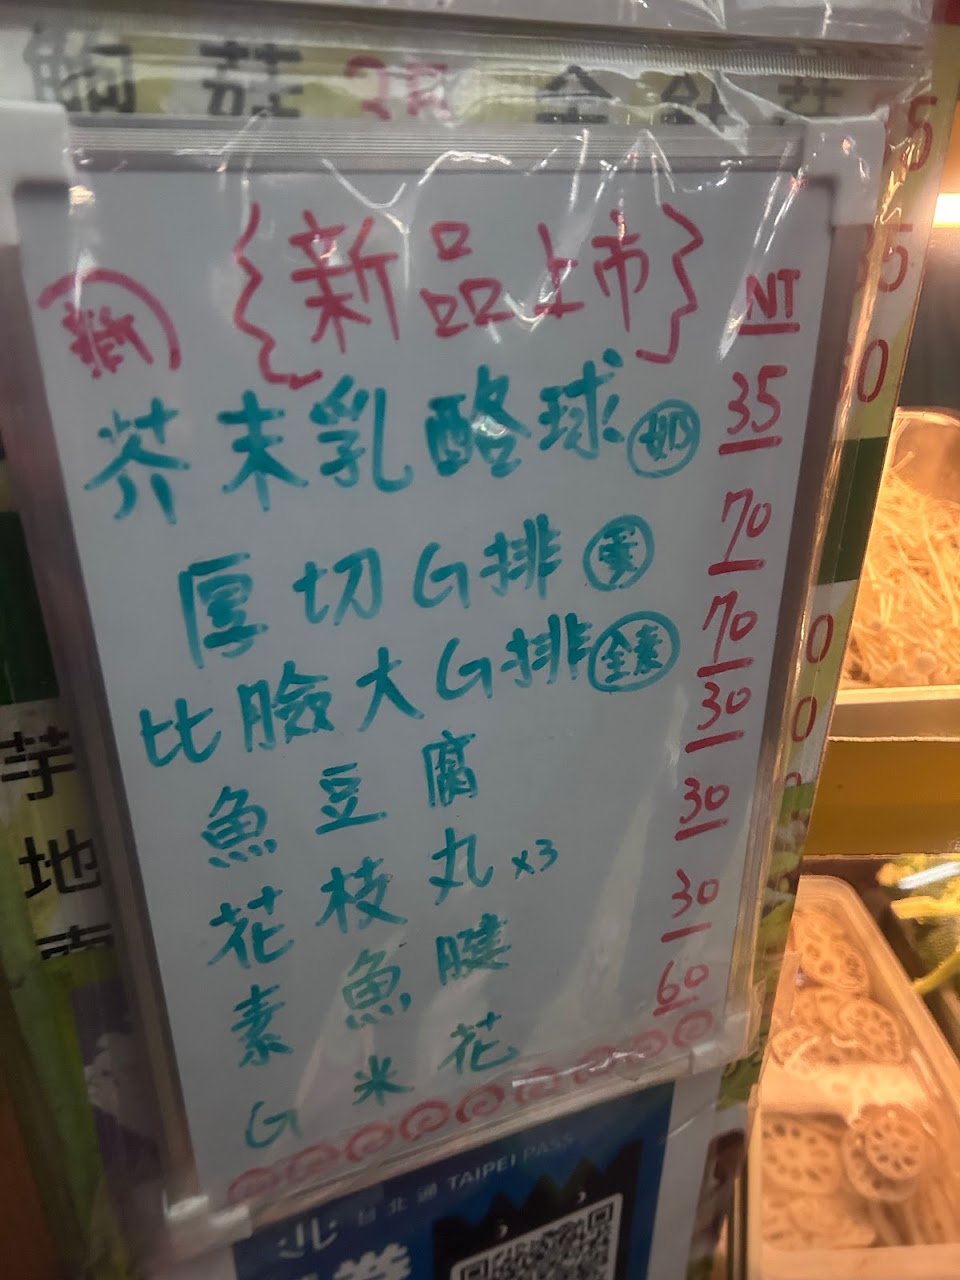 菇 金針菇 35
{新品上市} NT
芥末乳酪球 奶 35
厚切G排 蛋 70
比臉大G排 全素 70
魚豆腐 30
花枝丸x3 30
素魚腱 30
G米花 60
芋
地
台北通 TAIPEI PASS